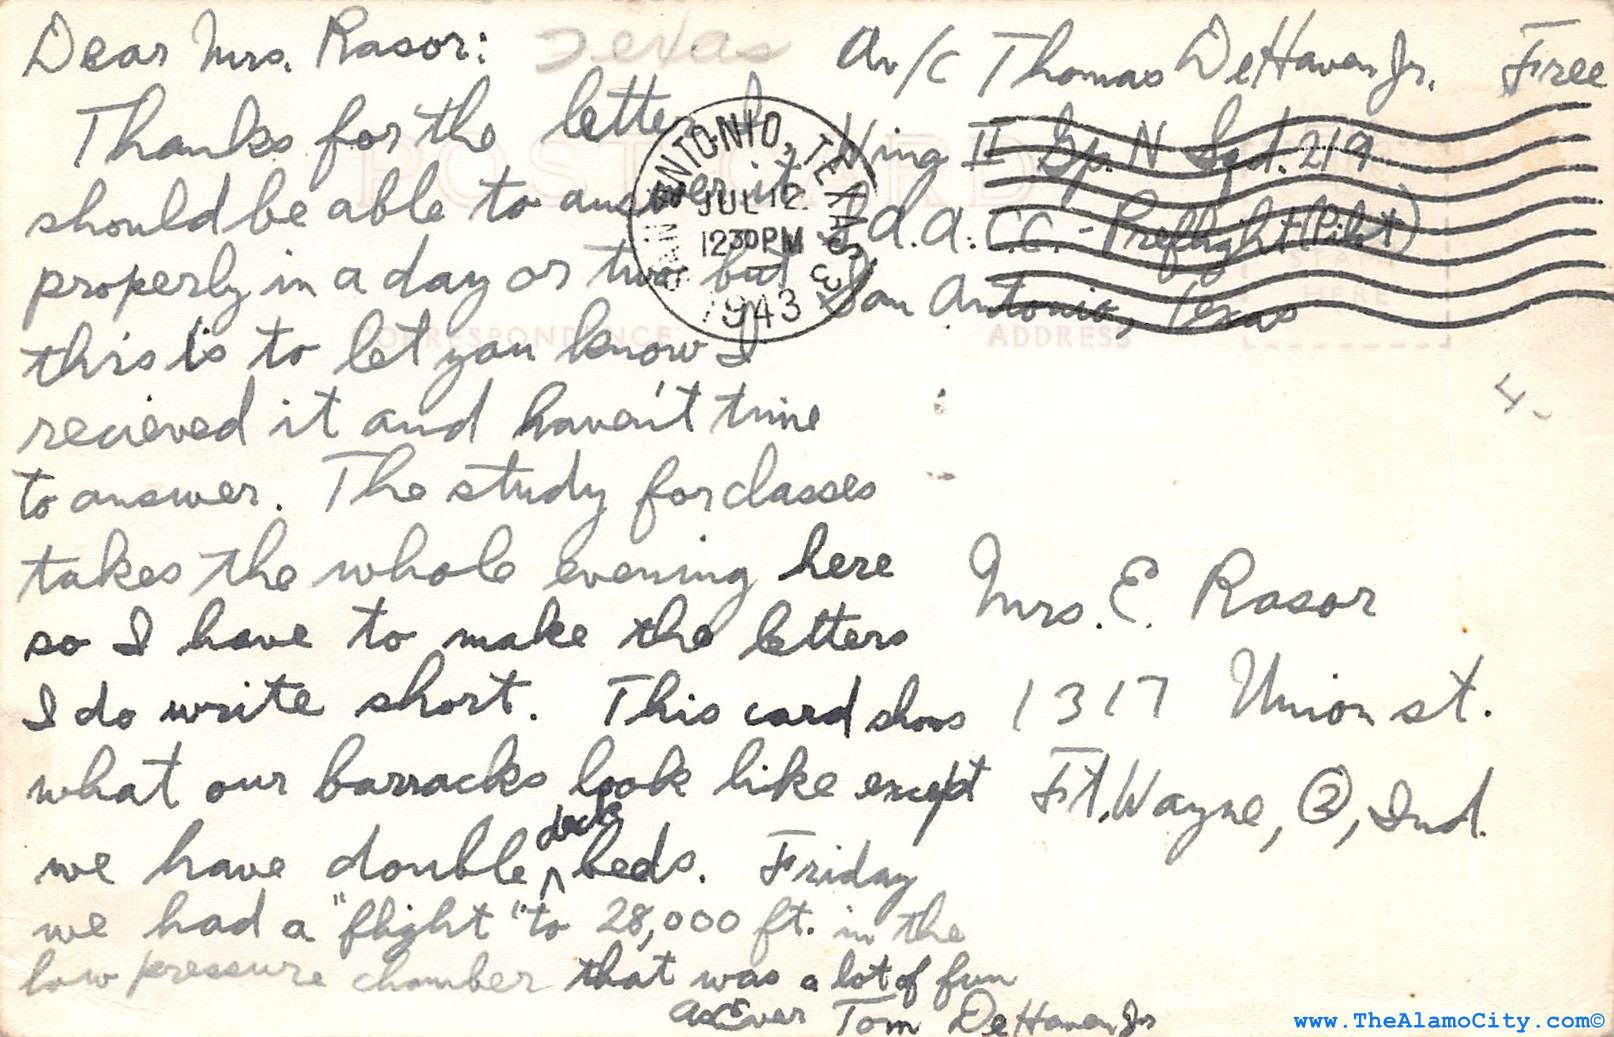 Dear Mrs. Rasor:
Texas
Thanks for the letter I
should be able to answer it
properly in a day or two but
this is to let you know I
recieved it and haven't time
to answer. The study for classes
takes the whole evening here
so I have to make the letters
I do write short. This card shows
what our barracks look like except
we have double deck beds. Friday
we had a "flight" to 28,000 ft. in the
low pressure chamber that was a lot of fun
As Ever Tom DeHaven Jr
Av/C Thomas DeHaven Jr. Free
Wing II Gp. N Sqd. 219
S.A.A.C.C. - Preflight (Pilot)
San Antonio, Texas
SAN ANTONIO, TEXAS
JUL 12
12 30 PM
1943
POST CARD
CORRESPONDENCE
ADDRESS
STAMP
HERE
4-
Mrs. E. Rasor
1317 Union st.
Ft. Wayne, 2, Ind.
www.TheAlamoCity.com©